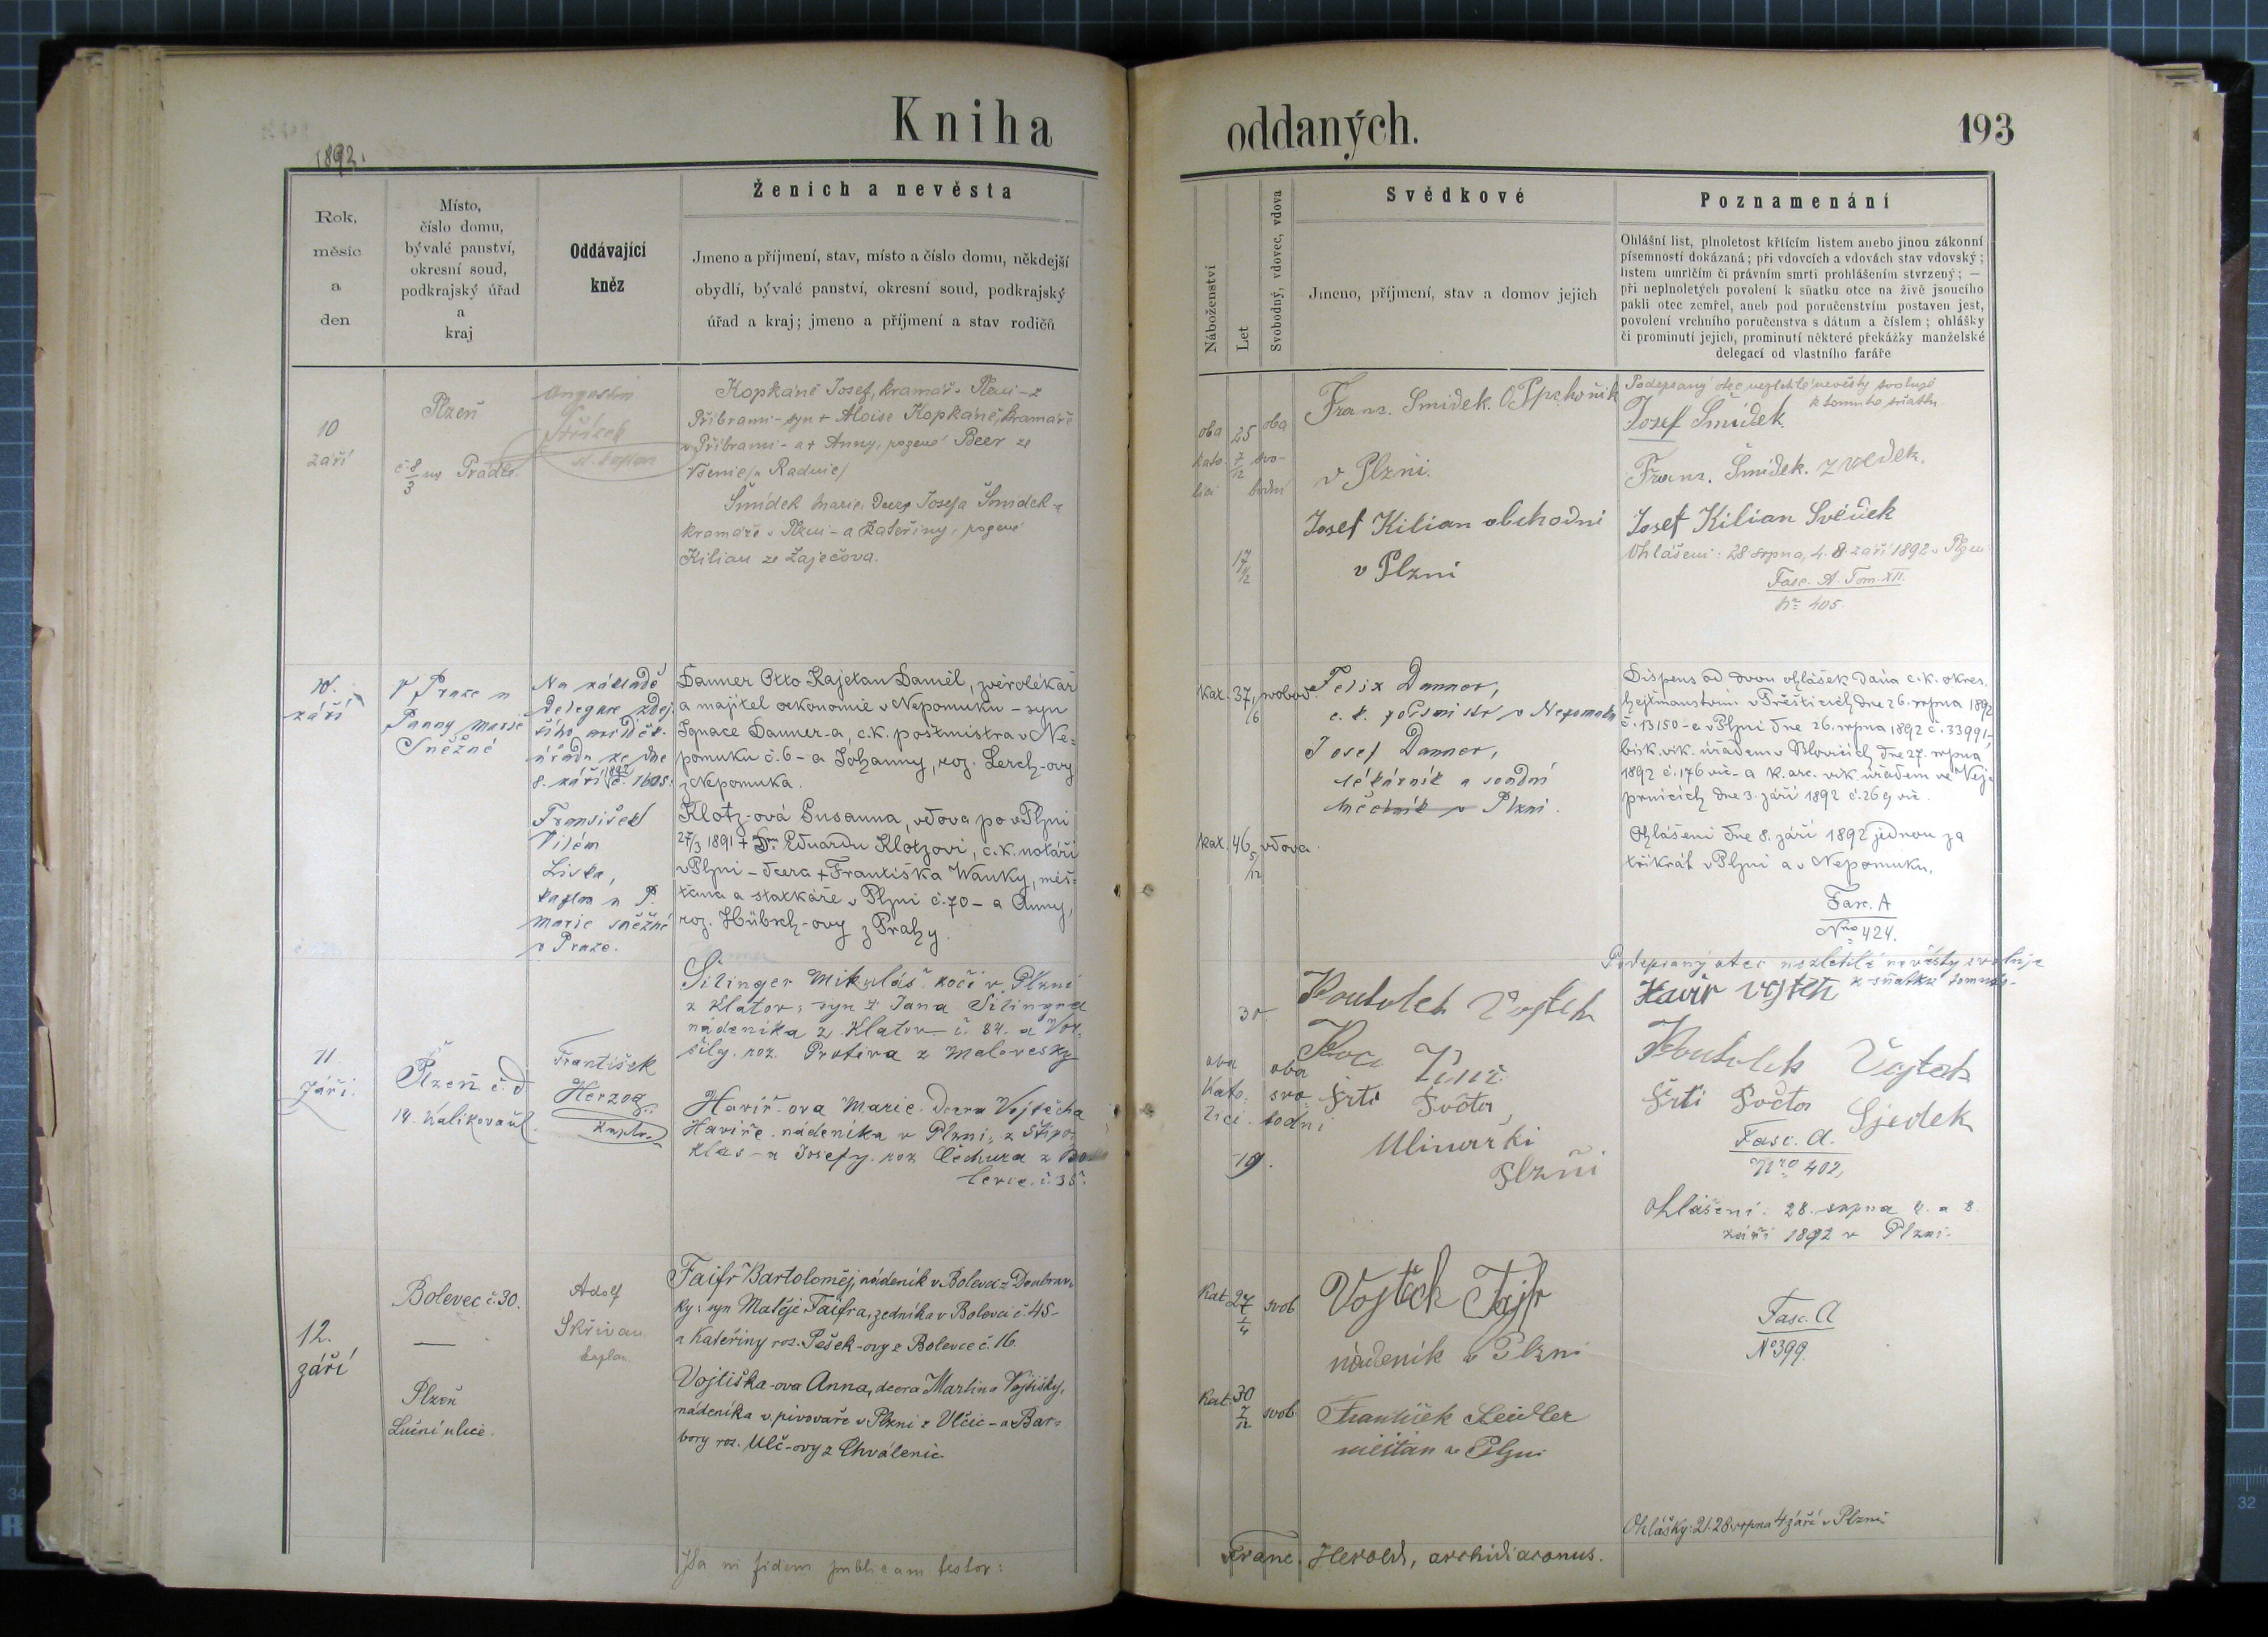 Kniha
oddaných.
193
1892.
Rok,
měsíc
a
den
Místo,
číslo domu,
bývalé panství,
okresní soud,
podkrajský úřad
a
kraj
Oddávající
kněz
Ženich a nevěsta
Jmeno a příjmení, stav, místo a číslo domu, někdejší
obydlí, bývalé panství, okresní soud, podkrajský
úřad a kraj; jmeno a příjmení a stav rodičů
Náboženství
Let
Svobodný, vdovec, vdova
Svědkové
Jmeno, příjmení, stav a domov jejich
Poznamenání
Ohlášní list, plnoletost křticím listem anebo jinou zákonní
písemností dokázaná; při vdovcích a vdovách stav vdovský;
listem umrlčím či právním smrti prohlášením stvrzený; —
při neplnoletých povolení k sňatku otce na živě jsoucího
pakli otec zemřel, aneb pod poručenstvím postaven jest,
povolení vrchního poručenstva s dátum a číslem; ohlášky
či prominutí jejich, prominutí některé překážky manželské
delegací od vlastního faráře
10
září
Plzeň
č 8/3 na
Augustin
Střízek
st. kaplan
Kopkáně Josef, kramář v Plzni - z
Příbrami - syn + Aloise Kopkáně, kramáře
v Příbrami - a + Anny, rozené Beer ze
Šmídek Marie, dcera Josefa Šmídek-a
kramáře v Plzni - a Kateřiny, rozené
Kilian ze Zaječova.
oba
kato-
líci
25
7/12
oba
svo-
bodni
17
1/2
Franz. Smidek.
v Plzni.
Josef Kilian obchodni
v Plzni
Podepsaný otec nezletilé nevěsty svoluje
k tomuto sňatku
Josef Šmídek.
Franz. Šmidek. zvedek.
Josef Kilian Svědek
Ohlášeni: 28 srpna, 4. 8. září 1892 v Plzni
Fasc. A. Tom. XII.
No 405.
10.
září
V Praze u
Panny Marie
Sněžné
Na základě
delegace zdej-
šího
úřadu ze dne
8. září 1892 č. 1605.
František
Vilém
Liška,
kaplan u P.
Marie sněžné
v Praze.
Danner Otto Kajetan Daniel, zvěrolékař
a majitel oekonomie v Nepomuku - syn
Ignace Danner-a, c.k. poštmistra v Ne-
pomuku č. 6 - a Johanny, roz. Lerch-ovy
z Nepomuka.
Klotz-ová Susanna, vdova po v Plzni
27/3 1891 + Dru Eduardu Klotzovi, c.k. notáři
v Plzni - dcera + Františka Wanky, měš-
ťana a statkáře v Plzni č. 70 - a Anny,
roz. Hübsch-ovy z Prahy.
kat.
37
svobod.
Felix Danner,
c. k. poštmistr v Nepomuku
Josef Danner,
lékárník a soudní
v Plzni.
kat.
46
5/12
vdova.
Dispens od dvou ohlášek dána c.k. okres.
hejtmanstvím v Přešticích dne 26. srpna 1892
č. 13150 - a v Plzni dne 26. srpna 1892 č. 33991,
bisk. vik. úřadem v Blovicích dne 27. srpna
1892 č. 176 vic - a k. arc. vik. úřadem ve Vej-
prnicích dne 3. září 1892 č. 269 vic.
Ohlášeni dne 8. září 1892 jednou za
třikrát v Plzni a v Nepomuku.
Fasc. A
Nro 424.
11.
září.
Plzeň č. d
14.
František
Herzog
Kaplan
Silinger Mikuláš kočí v Plzni
z Klatov, syn + Jana Silingra
nádeníka z Klatov č. 84. a Vor-
šily, roz. Protiva z
Havíř-ova Marie. dcera Vojtěcha
Havíře. nádeníka v Plzni, z
a Josefy. roz Čechura z Bo-
levce. č. 35.
30.
oba
Kato-
lici.
oba
svo-
bodni
19.
Koutelek Vojtech
Plzni
Podepsaný otec nezletilé nevěsty svoluje
k sňatku tomuto-
Havíř
Koutelek Vojtech
Fasc. A.
Nro 402,
Ohlášeni. 28. srpna 4. a 8.
září 1892 v Plzni.
12.
září
Bolevec č. 30.
—
Plzeň
Luční ulice.
Adolf
Skřivan
kaplan
Faifr Bartoloměj, nádeník v Bolevci z Doubrav-
ky: syn Matěje Faifra, zedníka v Bolevci č. 45 -
a Kateřiny roz. Pešek-ovy z Bolevce č. 16.
Vojtiška-ova Anna, dcera Martina Vojtišky,
nádeníka v pivovaře v Plzni z Vlčic - a Bar-
bory roz. Ulč-ovy z Chválenic
Kat.
27
1/4
svob.
Vojtěch Fajfr
nádeník v Plzni
Kat.
30
7/12
svob.
František Seidler
měšťan v Plzni
Fasc. A
No 399.
Ohlášky: 21. 28. srpna 4 září v Plzni
Ita in fidem publicam testor:
Franc. Herold, archidiaconus.